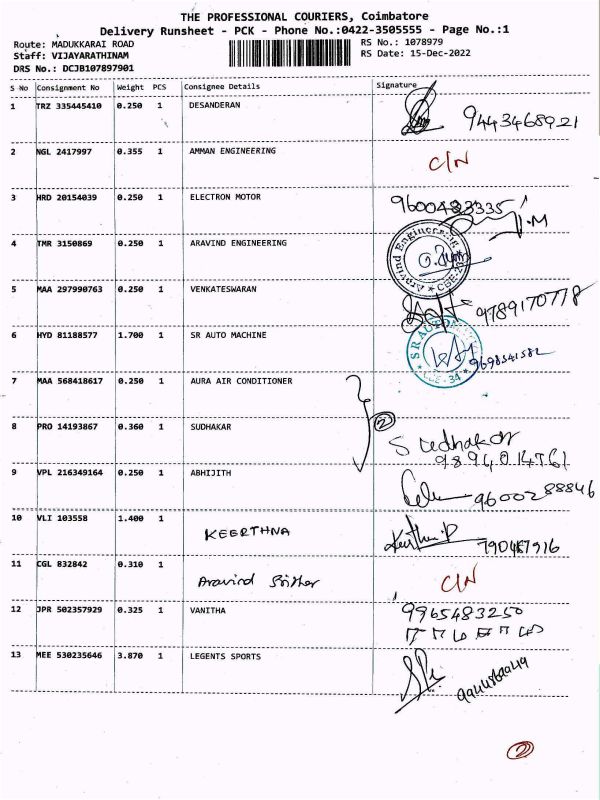 THE PROFESSIONAL COURIERS, Coimbatore
Delivery Runsheet - PCK - Phone No.:0422-3505555 - Page No.:1
Route: MADUKKARAI ROAD RS No.: 1078979
Staff: VIJAYARATHINAM RS Date: 15-Dec-2022
DRS No.: DCJB107897901
S No Consignment No Weight PCS Consignee Details Signature
1 TRZ 335445410 0.250 1 DESANDERAN 9443468921
2 NGL 2417997 0.355 1 AMMAN ENGINEERING C/N
3 HRD 20154039 0.250 1 ELECTRON MOTOR
4 TMR 3150869 0.250 1 ARAVIND ENGINEERING Aravind Engineering
5 MAA 297990763 0.250 1 VENKATESWARAN 9789170778
6 HYD 81188577 1.700 1 SR AUTO MACHINE
7 MAA 568418617 0.250 1 AURA AIR CONDITIONER
2
8 PRO 14193867 0.360 1 SUDHAKAR Sudhakar
9 VPL 216349164 0.250 1 ABHIJITH 9600288846
10 VLI 103558 1.400 1 KEERTHNA
11 CGL 832842 0.310 1 Aravind C/N
12 JPR 502357929 0.325 1 VANITHA 9965483250
13 MEE 530235646 3.870 1 LEGENTS SPORTS
2